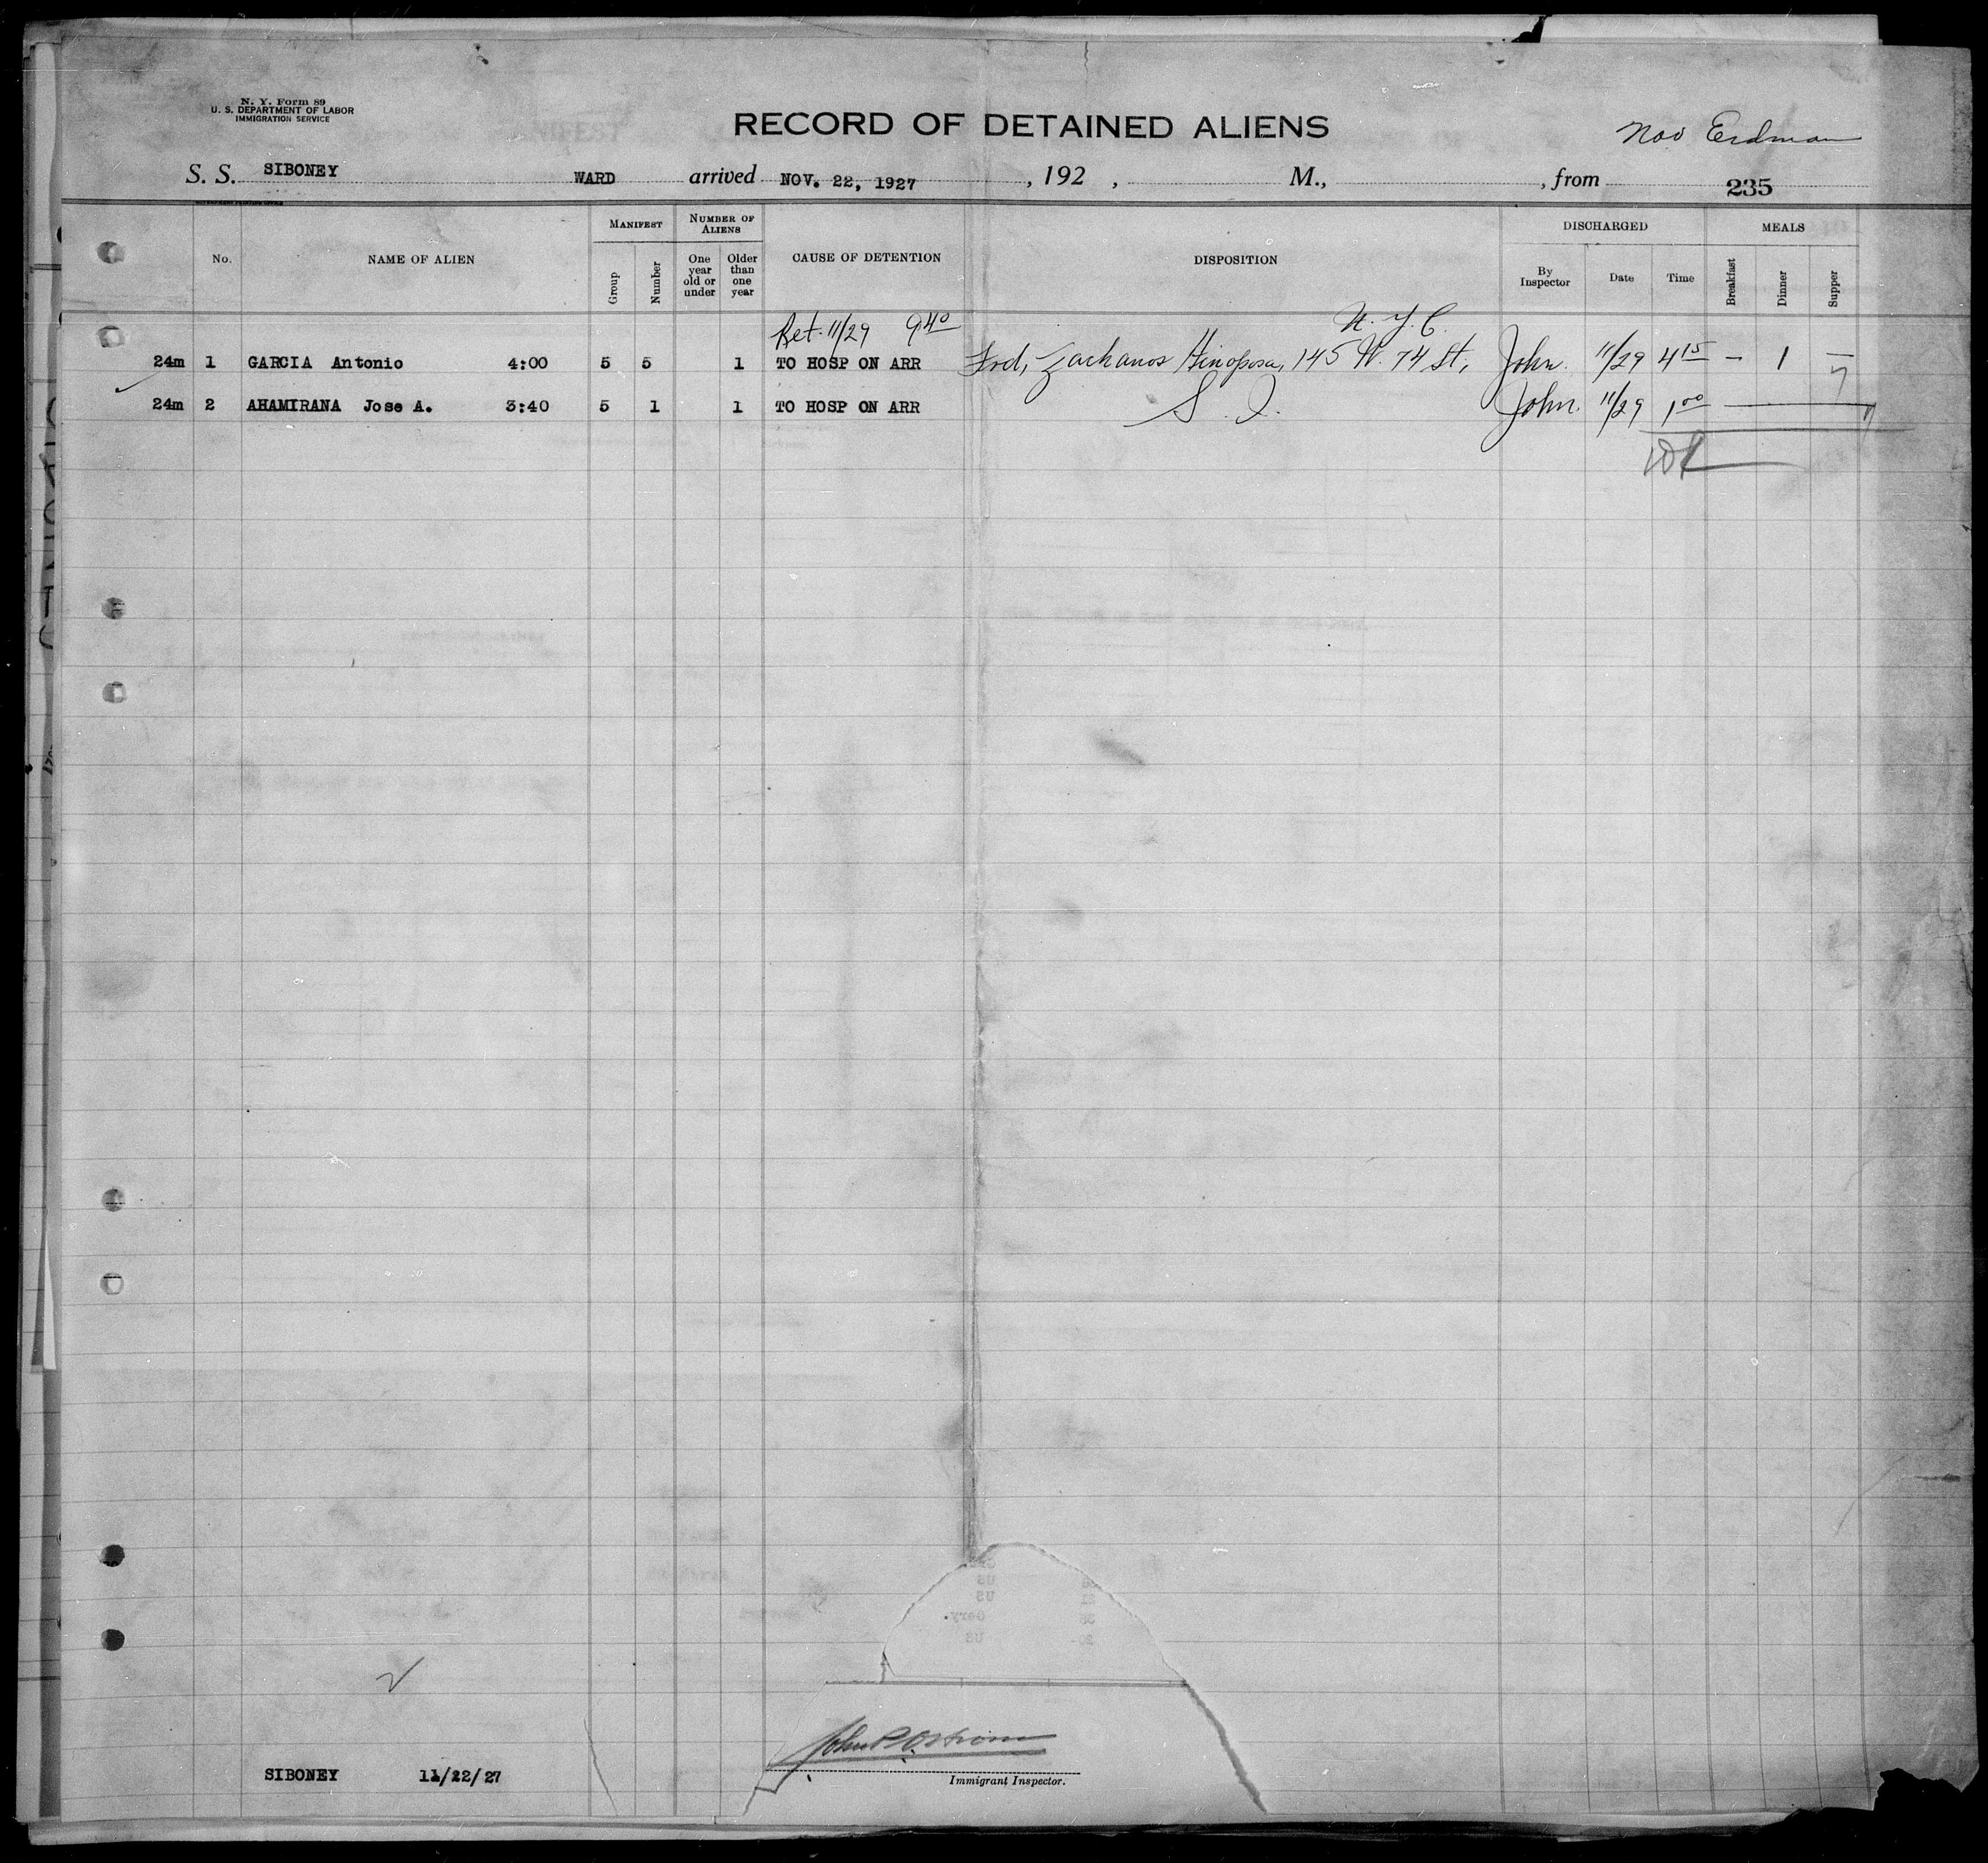 N. Y. Form 89
U. S. DEPARTMENT OF LABOR
IMMIGRATION SERVICE
RECORD OF DETAINED ALIENS
Erdman
S. S. SIBONEY WARD arrived NOV. 22, 1927, 192 , M., , from 235
No. NAME OF ALIEN MANIFEST Group Number NUMBER OF ALIENS One year old or under Older than one year CAUSE OF DETENTION DISPOSITION DISCHARGED By Inspector Date Time MEALS Breakfast Dinner Supper
Ret. 11/29 9 40 N. Y. C.
24m 1 GARCIA Antonio 4:00 5 5 1 TO HOSP ON ARR 145 W. 74 St, John. 11/29 4 15 — 1 —
24m 2 AHAMIRANA Jose A. 3:40 5 1 1 TO HOSP ON ARR S. I. John. 11/29 1 00
SIBONEY 11/22/27
Immigrant Inspector.